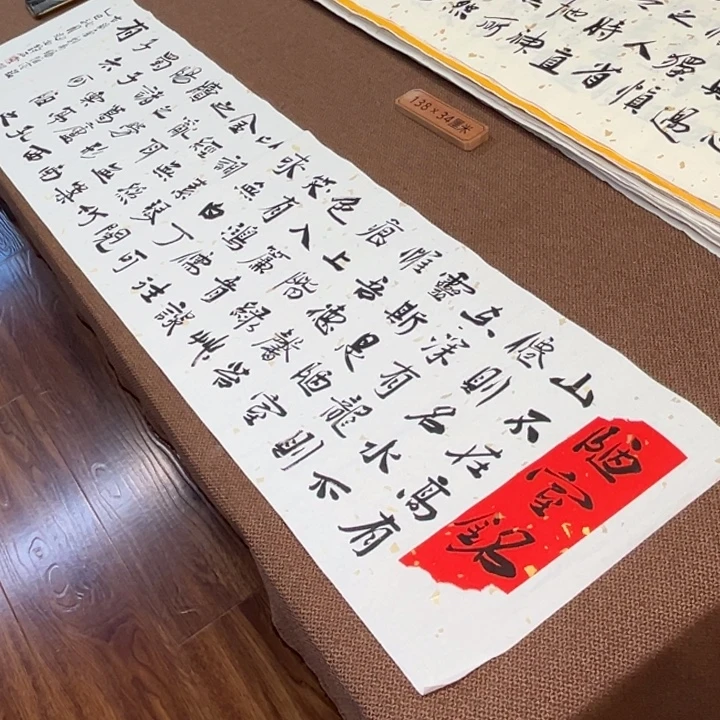 陋室銘
山不在高有
僊則名水不
在深有龍則
靈斯是陋室
惟吾德馨苔
痕上階綠艸
色入簾青談
笑有鴻儒往
來無白丁可
以調素琴閱
金經無絲竹
之亂耳無案
牘之勞形南
陽諸葛廬西
蜀子雲亭孔
子云何陋之
有
138×34厘米